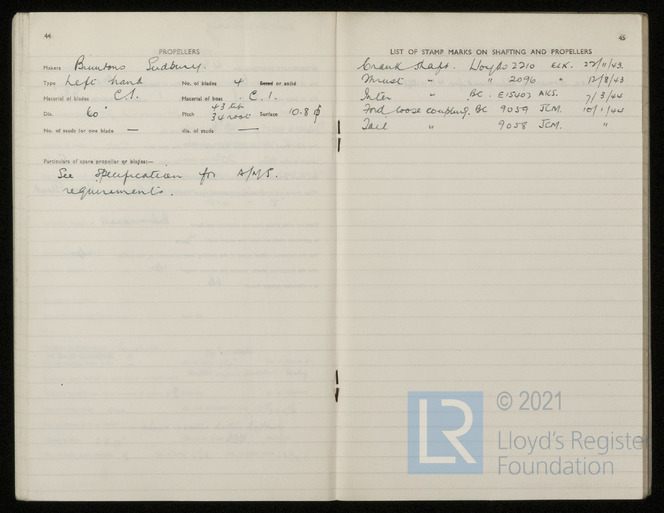 44
PROPELLERS
Makers Bruntons Sudbury.
Type Left hand No. of blades 4 fixed or solid
Material of blades C.I. Material of boss C.I.
Dia. 60" Pitch 43 tip 34 root Surface 10.8
No. of studs for one blade — dia. of studs —
Particulars of spare propeller or blades:—
See Specification for A/N/S.
requirements.
45
LIST OF STAMP MARKS ON SHAFTING AND PROPELLERS
Crank shaft. Lloyds 2210 ECK. 22/11/43.
Thrust " " 2096 " 17/8/43
Inter " BC. E15403 AKS. 7/3/44
Ford loose coupling. BC 9059 JCM. 10/1/44
Tail " 9058 JCM. "
© 2021
LR
Lloyd's Register
Foundation